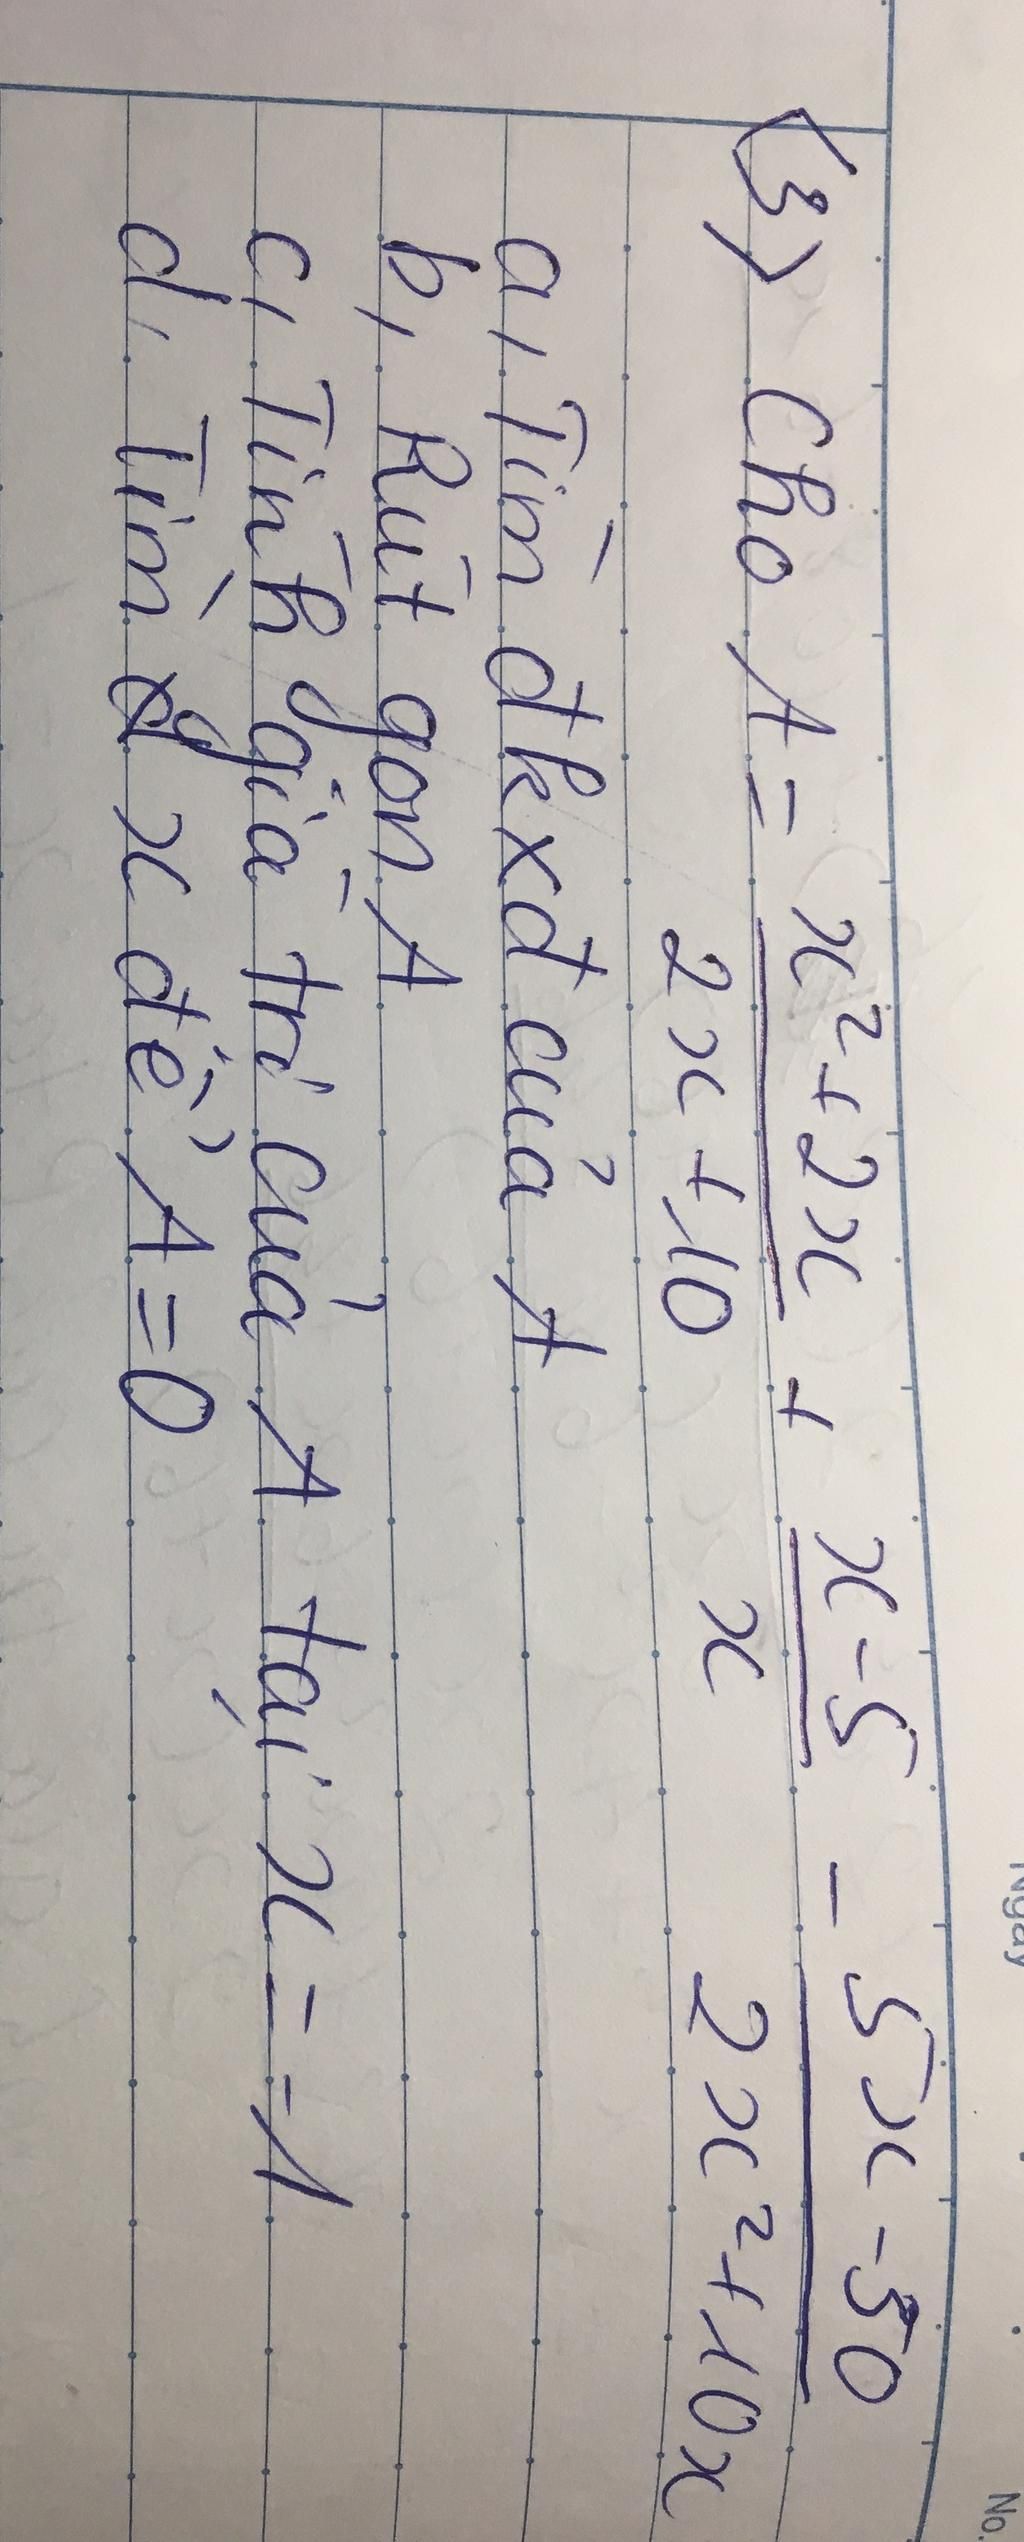 <3> Cho A = x²+2x / 2x+10 + x-5 / x - 5x-50 / 2x²+10x
a, Tìm đkxđ của A
b, Rút gọn A
c, Tính giá trị của A tại x = -1
d, Tìm x để A = 0
Ngày
No.